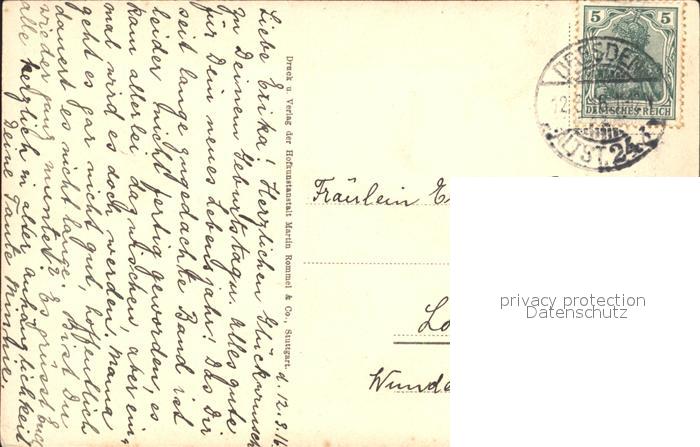 d. 12.3.16
Liebe Erika! Herzlichen Glückwunsch
zu Deinem Geburtstage. Alles Gute
für Dein neues Lebensjahr! Das Dir
seit lange zugedachte Band ist
leider nicht fertig geworden, es
kam allerlei dazwischen, aber ein-
mal wird es doch werden. Mama
geht es gar nicht gut, hoffentlich
dauert es nicht lange. Bist Du
wieder ganz munter? Es grüsst Euch
alle herzlich in alter Anhänglichkeit
Deine Tante
Druck u. Verlag der Hofkunstanstalt Martin Rommel & Co., Stuttgart.
5 5
DEUTSCHES REICH
DRESDEN
ALTST. 24
Fräulein
privacy protection
Datenschutz